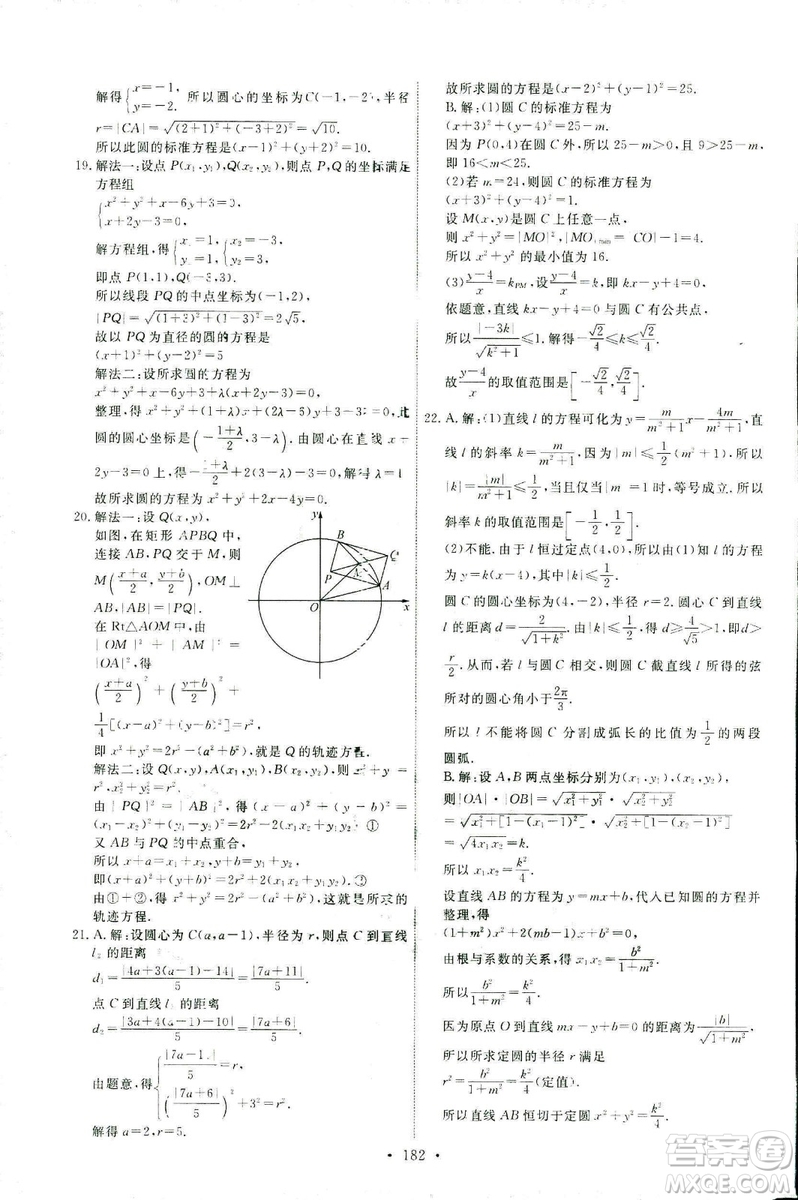 解得{x=-1, y=-2. 所以圆心的坐标为C(-1,-2),半径
r=|CA|=√((2+1)²+(-3+2)²)=√10.
所以此圆的标准方程是(x-1)²+(y+2)²=10.
19. 解法一:设点P(x₁,y₁),Q(x₂,y₂),则点P,Q的坐标满足
方程组
{x²+y²+x-6y+3=0, x+2y-3=0.
解方程组,得{x₁=1, y₁=1, {x₂=-3, y₂=3.
即点P(1,1),Q(-3,3)
所以线段PQ的中点坐标为(-1,2),
|PQ|=√((1+3)²+(1-3)²)=2√5.
故以PQ为直径的圆的方程是
(x+1)²+(y-2)²=5
解法二:设所求圆的方程为
x²+y²+x-6y+3+λ(x+2y-3)=0.
整理,得x²+y²+(1+λ)x+(2λ-6)y+3-3λ=0,此
圆的圆心坐标是(-(1+λ)/2,3-λ),由圆心在直线x-
2y-3=0上,得-(1+λ)/2+2(3-λ)-3=0,解得λ=1
故所求圆的方程为x²+y²+2x-4y=0.
20. 解法一:设Q(x,y),
如图,在矩形APBQ中,
连接AB,PQ交于M,则
M((x+a)/2,(y+b)/2),OM⊥
AB,|AB|=|PQ|.
在Rt△AOM中,由
|OM|²+|AM|²=
|OA|²,得
((x+a)/2)²+((y+b)/2)²+
1/4[(x-a)²+(y-b)²]=r²,
即x²+y²=2r²-(a²+b²),就是Q的轨迹方程.
解法二:设Q(x,y),A(x₁,y₁),B(x₂,y₂),则x₁²+y₁²
=r²,x₂²+y₂²=r².
由|PQ|²=|AB|²,得(x-a)²+(y-b)²=
(x₁-x₂)²+(y₁-y₂)²=2r²-2(x₁x₂+y₁y₂). ①
又AB与PQ的中点重合,
所以x+a=x₁+x₂,y+b=y₁+y₂.
即(x+a)²+(y+b)²=2r²+2(x₁x₂+y₁y₂). ②
由①+②,得x²+y²=2r²-(a²+b²),这就是所求的
轨迹方程.
21. A.解:设圆心为C(a,a-1),半径为r,则点C到直线
l₂的距离
d₁=|4a+3(a-1)+14|/5=|7a+11|/5.
点C到直线l₁的距离
d₂=|3a+4(a-1)+10|/5=|7a+6|/5.
由题意,得{|7a-1…|/5=r, (|7a+6|/5)²+3²=r².
解得a=2,r=5.
故所求圆的方程是(x-2)²+(y-1)²=25.
B.解:(1)圆C的标准方程为
(x-3)²+(y-4)²=25-m.
因为P(0,4)在圆C外,所以25-m>0,9>25-m.
即16<m<25.
(2)若m=24,则圆C的标准方程为
(x-3)²+(y-4)²=1.
设M(x,y)是圆C上任意一点,
则x²+y²=|MO|²,|MO|min=|CO|-1=4.
所以x²+y²的最小值为16.
(3)(y-4)/x=kPM,设(y-4)/x=k,即kx-y+4=0.
依题意,直线kx-y+4=0与圆C有公共点.
所以|-3k|/√(k²+1)≤1.解得-√2/4≤k≤√2/4.
故(y-4)/x的取值范围是[-√2/4,√2/4].
22. A.解:(1)直线l的方程可化为y=m/(m²+1)x-4m/(m²+1),直
线l的斜率k=m/(m²+1),因为|m|≤1/2(m²+1).所以
|k|=|m|/(m²+1)≤1/2,当且仅当|m|=1时,等号成立.所以
斜率k的取值范围是[-1/2,1/2].
(2)不能.由于l恒过定点(4,0),所以由(1)知l的方
程为y=k(x-4),其中|k|≤1/2.
圆C的圆心坐标为(4,-2),半径r=2.圆心C到直线
l的距离d=2/√(1+k²).由|k|≤1/2,得d≥4/√5>1,即d>
r/2.从而,若l与圆C相交,则圆C截直线l所得的弦
所对的圆心角小于2π/3.
所以l不能将圆C分割成弧长的比值为1/2的两段
圆弧.
B.解:设A,B两点坐标分别为(x₁,y₁),(x₂,y₂),
则|OA|·|OB|=√(x₁²+y₁²)·√(x₂²+y₂²)
=√(x₁²+[1-(x₁-1)²])·√(x₂²+[1-(x₂-1)²])
=√(4x₁x₂)=k.
所以x₁x₂=k²/4.
设直线AB的方程为y=mx+b,代入已知圆的方程并
整理,得
(1+m²)x²+2(mb-1)x+b²=0.
由根与系数的关系,得x₁x₂=b²/(1+m²).
所以b²/(1+m²)=k²/4.
因为原点O到直线mx-y+b=0的距离为|b|/√(1+m²),
所以所求定圆的半径r满足
r²=b²/(1+m²)=k²/4(定值).
所以直线AB恒切于定圆x²+y²=k²/4.
y
B
Q
P
A
O
x
182
答案圈
MXQE.COM